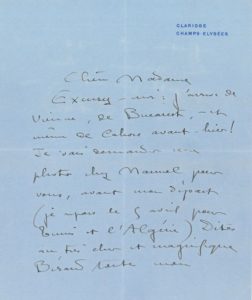 CLARIDGE
CHAMPS-ELYSÉES
Chère Madame
Excusez-moi: j'arrive de
Vienne, de Bucarest, et
même de Cahors avant-hier!
Je vais demander une
photo chez Manuel pour
vous, avant mon départ
(je repars le 5 avril pour
Tunis et l'Algérie) Dites
au très cher et magnifique
Bérard toute mon